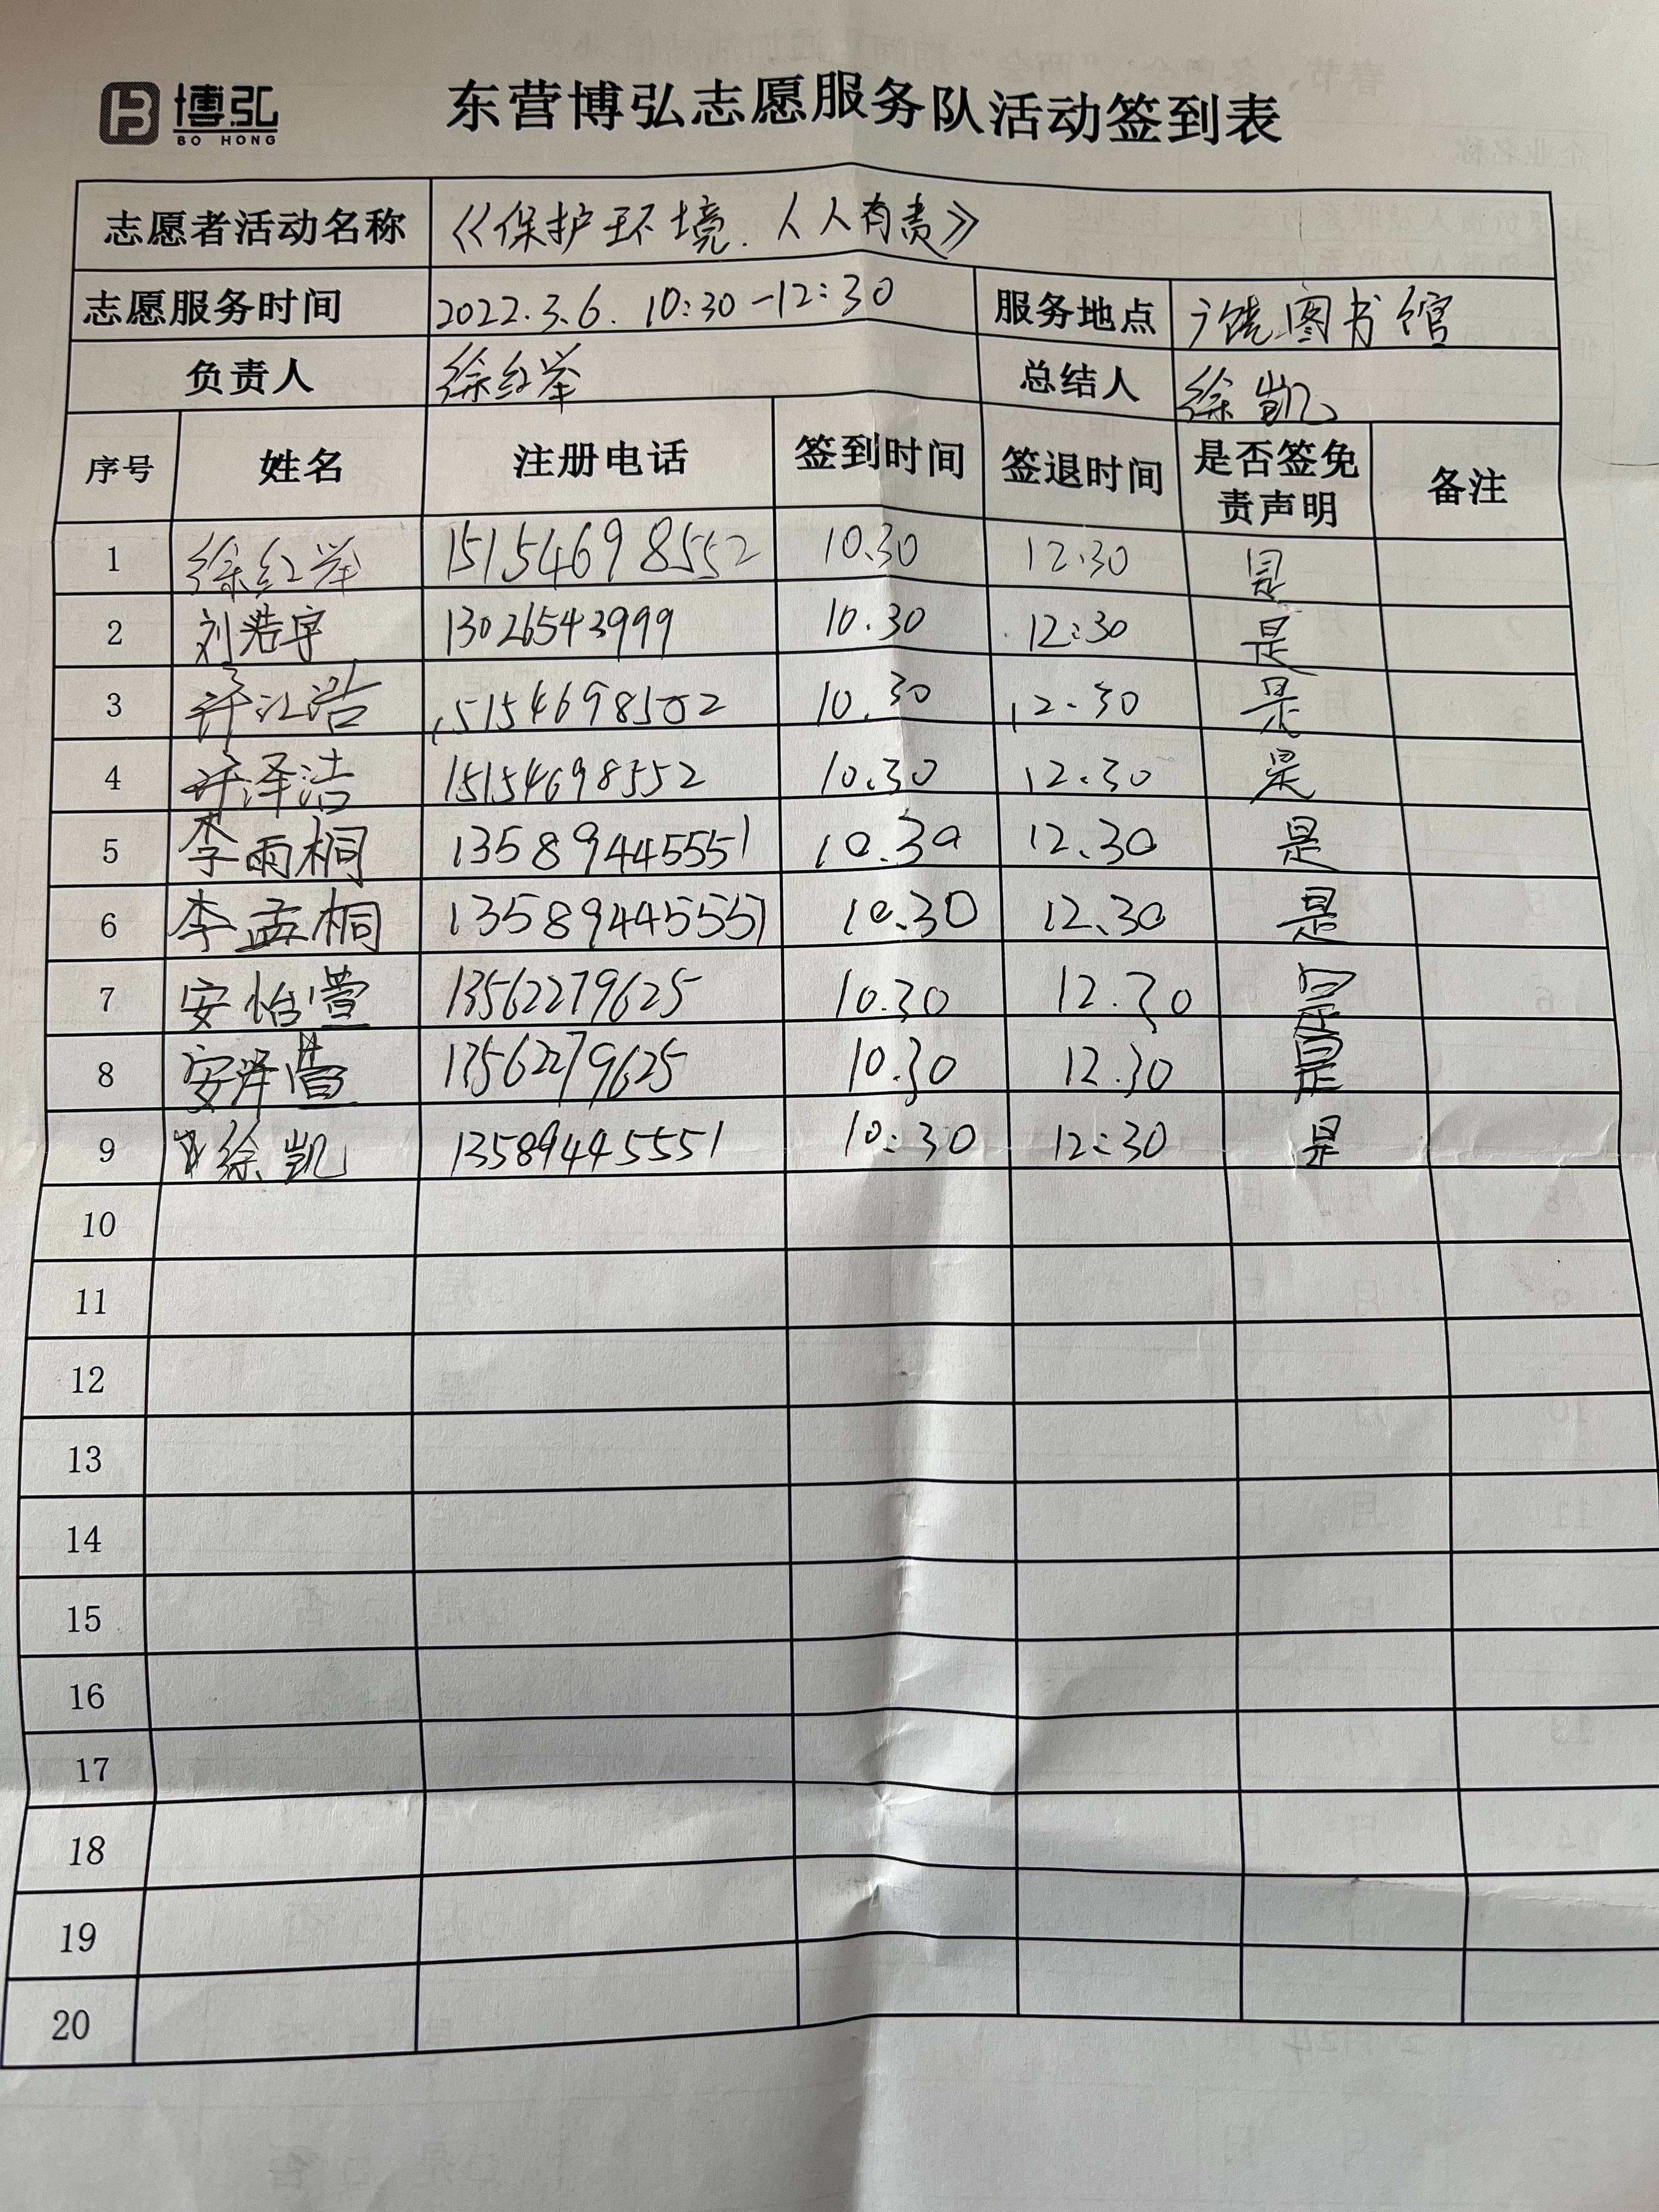 博弘
BO HONG
东营博弘志愿服务队活动签到表
志愿者活动名称 《保护环境.人人有责》
志愿服务时间 2022.3.6. 10:30-12:30 服务地点 广饶图书馆
负责人 徐红举 总结人 徐凯
序号 姓名 注册电话 签到时间 签退时间 是否签免责声明 备注
1 徐红举 15154698552 10.30 12.30 是
2 刘浩宇 13026543999 10.30 12:30 是
3 许江浩 15154698502 10.30 12.30 是
4 许泽洁 15154698552 10.30 12.30 是
5 李雨桐 13589445551 10.30 12.30 是
6 李孟桐 13589445551 10.30 12.30 是
7 安怡萱 13562279625 10.30 12.30 是
8 安泽萱 13562279625 10.30 12.30 是
9 徐凯 13589445551 10:30 12:30 是
10
11
12
13
14
15
16
17
18
19
20